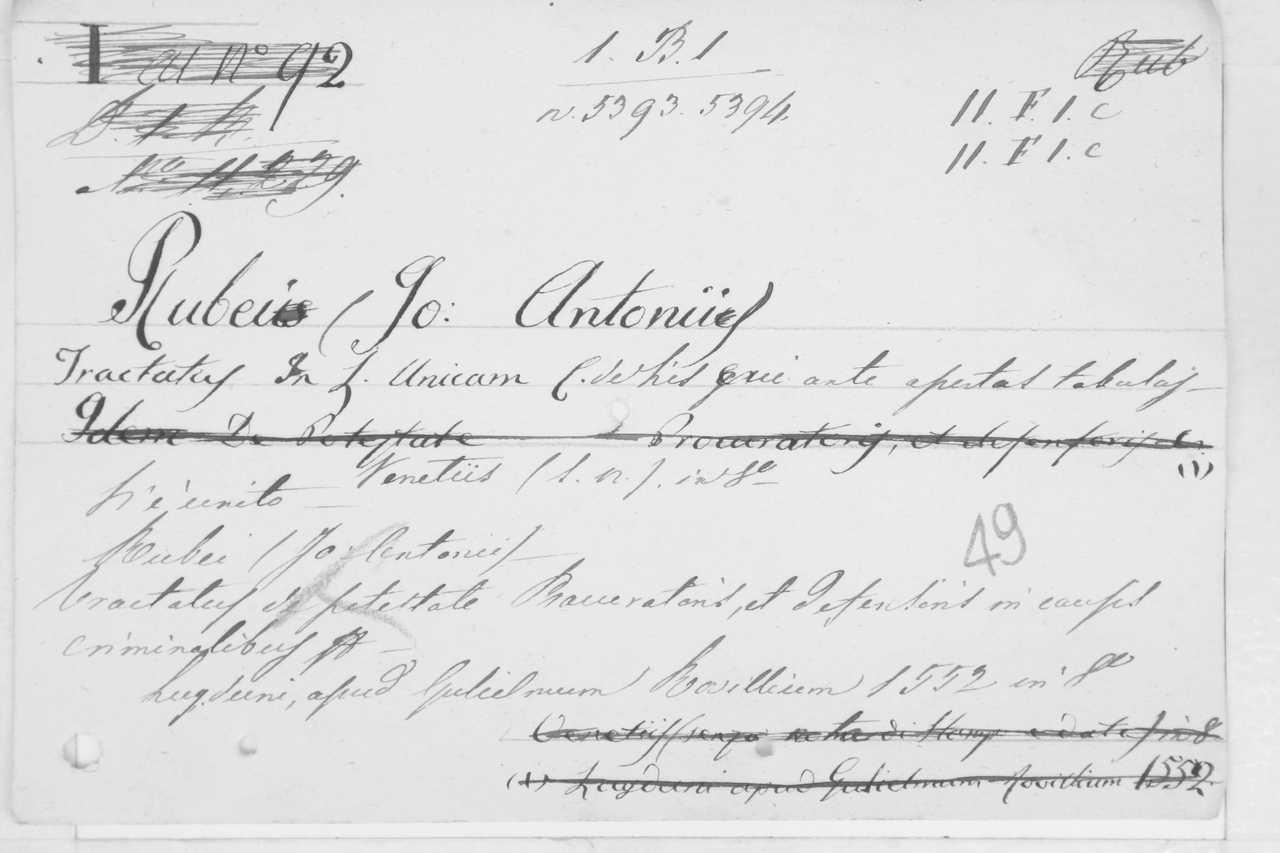 Cat nº 92
1. B. 1
Rub
n. 5393. 5394.
11. F. 1. C
11. F 1. C
Rubeis (Jo: Antonius)
Tractatus In L. Unicam C. de his qui ante apertas tabulas —
Idem De Potestate Procuratoris, et defensoris
(1)
Venetiis (s. n.). in 8º
Si è unito —
49
Rubei (Jo: Antonii) —
Tractatus de potestate Procuratoris, et defensoris in causis
criminalibus —
Lugduni, apud Gulielmum Rovillium 1552 in 8º
Venetiis (senza di Stamp e data) in 8
(1) Lugduni apud Gulielmum Rovillium 1552